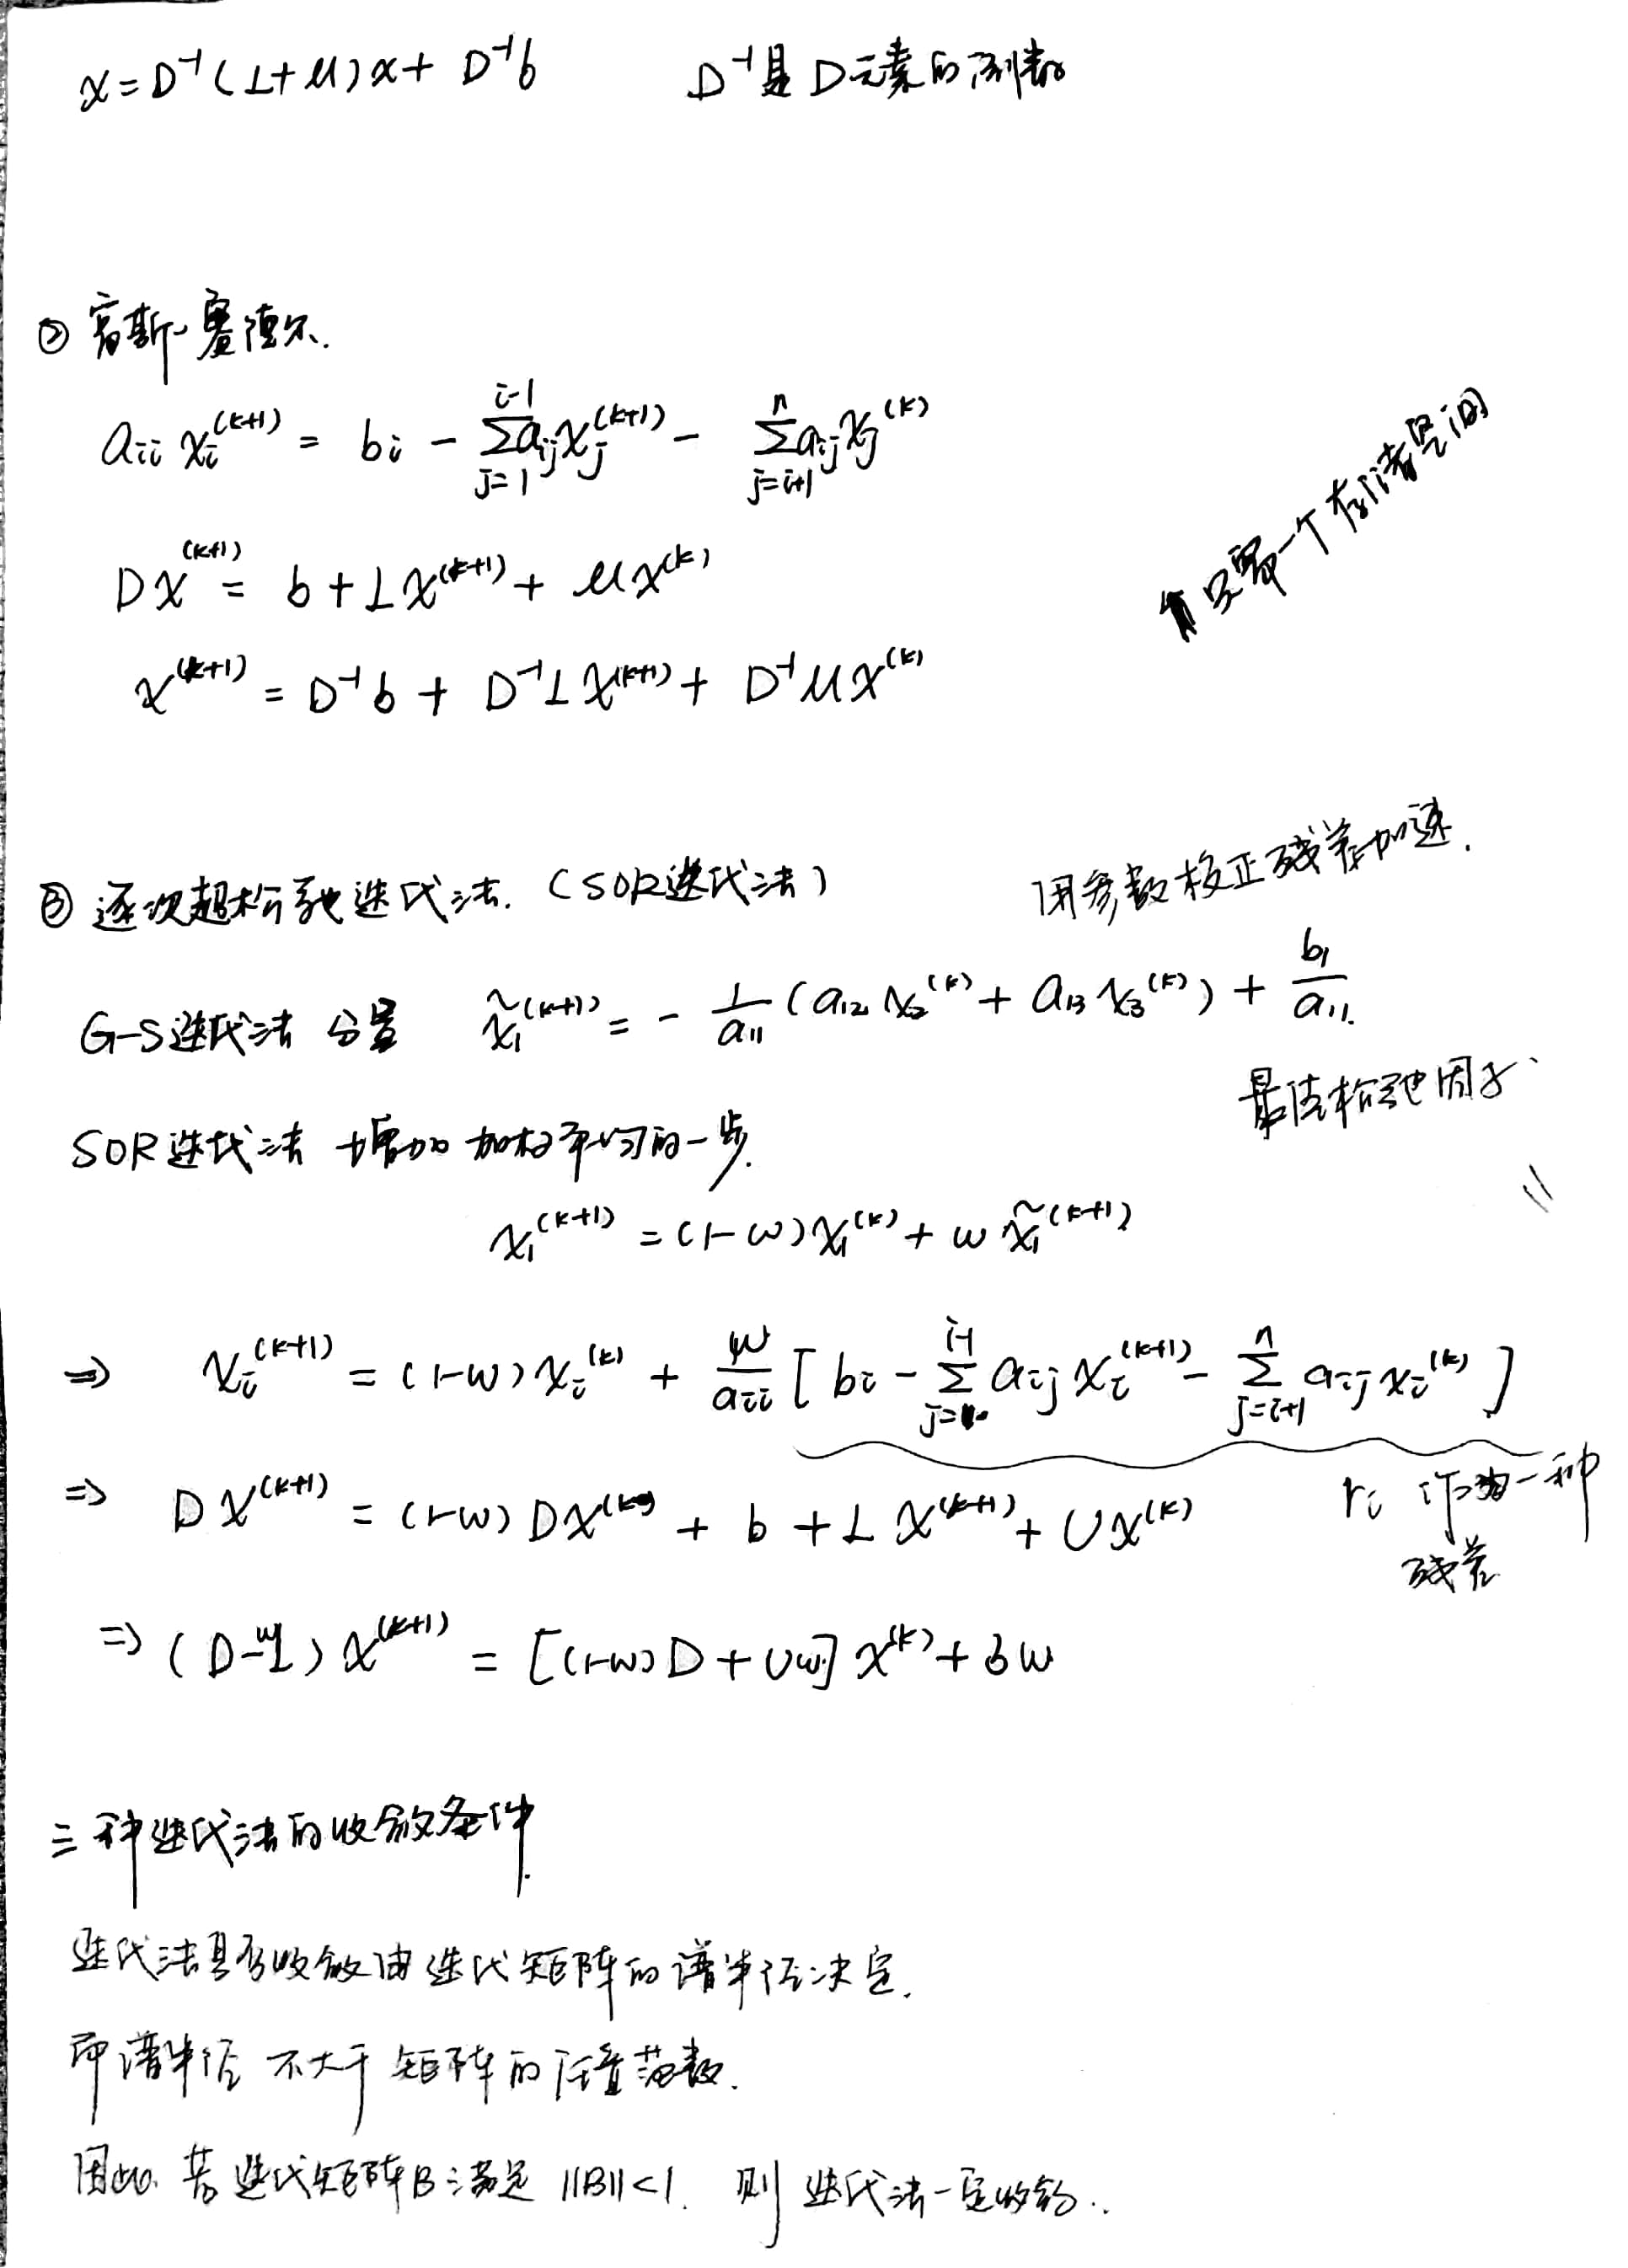 x = D⁻¹(L+U)x + D⁻¹b D⁻¹是D元素的倒数
② 高斯-赛德尔.
aᵢᵢ xᵢ^(k+1) = bᵢ - Σ_{j=1}^{i-1} aᵢⱼ xⱼ^(k+1) - Σ_{j=i+1}^{n} aᵢⱼ xⱼ^(k)
Dx^(k+1) = b + Lx^(k+1) + Ux^(k)
只需一个存储空间
x^(k+1) = D⁻¹b + D⁻¹Lx^(k+1) + D⁻¹Ux^(k)
③ 逐次超松弛迭代法. (SOR迭代法) 用参数校正残差加速.
G-S迭代法 分量 x̃₁^(k+1) = - 1/a₁₁ (a₁₂ x₂^(k) + a₁₃ x₃^(k)) + b₁/a₁₁.
最佳松弛因子
SOR迭代法 增加 加权平均的一步.
x₁^(k+1) = (1-ω)x₁^(k) + ω x̃₁^(k+1)
⇒ xᵢ^(k+1) = (1-ω)xᵢ^(k) + ω/aᵢᵢ [ bᵢ - Σ_{j=1}^{i-1} aᵢⱼ xᵢ^(k+1) - Σ_{j=i+1}^{n} aᵢⱼ xᵢ^(k) ]
⇒ Dx^(k+1) = (1-ω)Dx^(k) + b + Lx^(k+1) + Ux^(k) rᵢ 作为一种
残差
⇒ (D-ωL)x^(k+1) = [(1-ω)D + Uω]x^(k) + bω
三种迭代法的收敛条件.
迭代法是否收敛由迭代矩阵的谱半径决定.
即谱半径 不大于 矩阵的任意范数.
因此. 若迭代矩阵B满足 ||B||<1. 则 迭代法一定收敛.